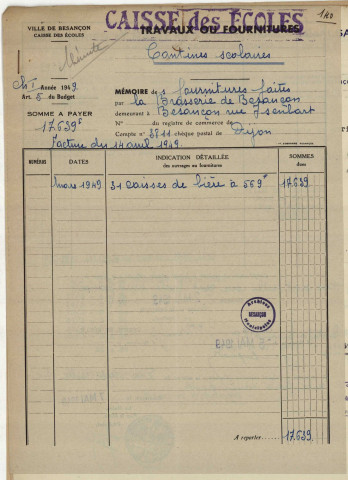 CAISSE des ÉCOLES
140
VILLE DE BESANÇON
CAISSE DES ÉCOLES
TRAVAUX OU FOURNITURES
Minute
Cantines scolaires
Ch. I Année 1949.
Art. 5 du Budget
SOMME A PAYER
17.639 F
MÉMOIRE des fournitures faites
par la Brasserie de Besançon
demeurant à Besançon rue Isenbart
N° du registre de commerce de
Compte n° 5811 chèque postal de Dijon
Facture du 14 avril 1949.
NUMÉROS
DATES
INDICATION DÉTAILLÉE
des ouvrages ou fournitures
SOMMES
dues
mars 1949
31 caisses de bière à 569 F
17.639
Archives
BESANÇON
Municipales
A reporter
17.639